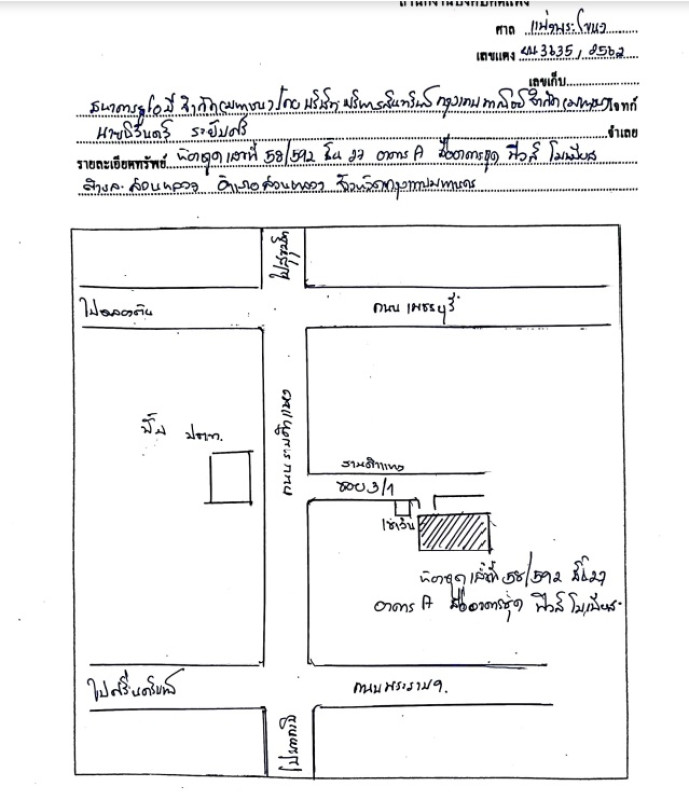 ศาล แพ่งพระโขนง
เลขแดง ผบ 3635/2562
เลขเก็บ
ธนาคารยูโอบี จำกัด(มหาชน) โดย บริษัท บริหารสินทรัพย์ กรุงเทพพาณิชย์ จำกัด(มหาชน) โจทก์
จำเลย
รายละเอียดทรัพย์ ห้องชุดเลขที่ 58/592 ชั้น 27 อาคาร A ชื่ออาคารชุด ฟิวส์ โมเบียส
แขวง สวนหลวง อำเภอสวนหลวง จังหวัดกรุงเทพมหานคร
ถนน เพชรบุรี
ถนน รามคำแหง
ปั๊ม ปตท.
รามคำแหง
ซอย 3/1
ห้องชุดเลขที่ 58/592 ชั้น 27
อาคาร A ชื่ออาคารชุด ฟิวส์ โมเบียส
ไปศรีนครินทร์
ถนนพระราม 9